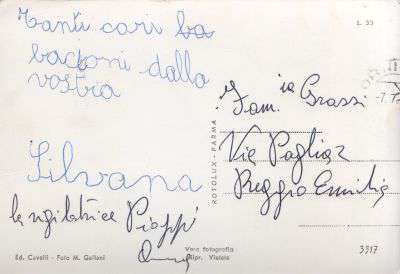 L. 33
Tanti cari ba
bacioni dalla
vostra
Silvana
la vigilatrice Pioppi
Anna
Fam.ia Grassi
Via Paglia 2
Reggio Emilia
ROTOLUX - PARMA
-7.7
Ed. Cavalli - Foto M. Galloni
Vera fotografia
Ripr. Vietata
3917